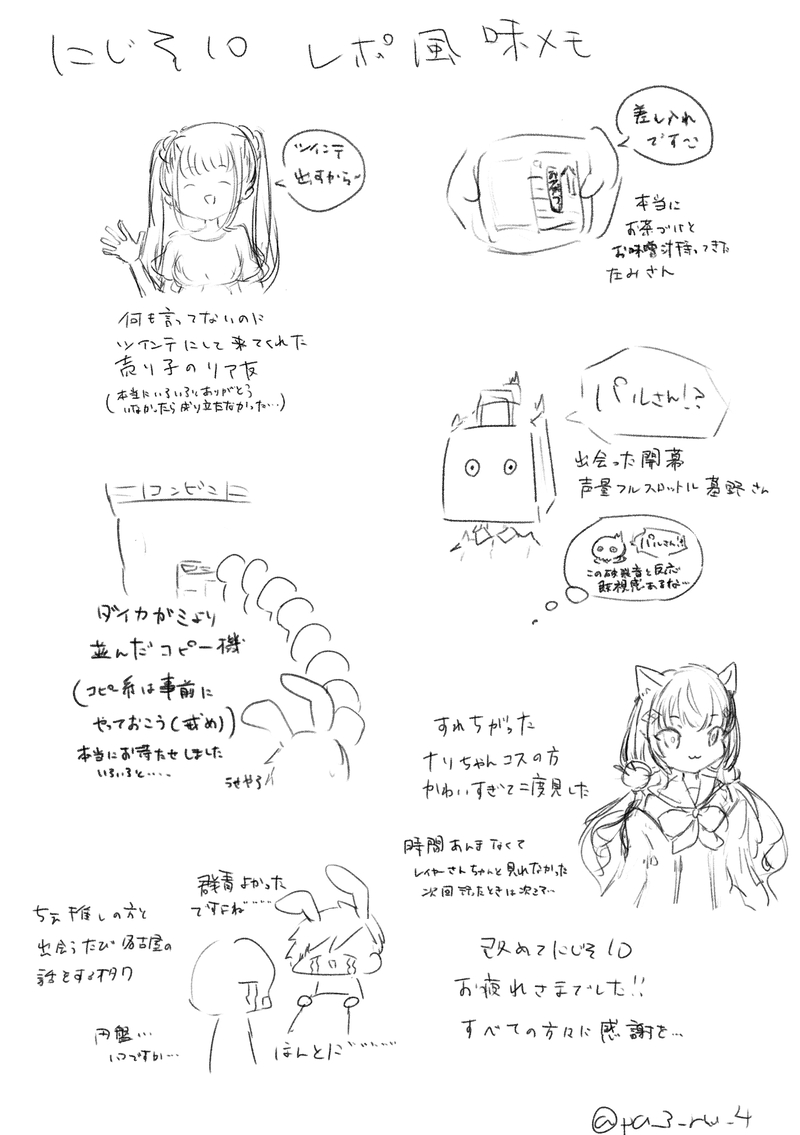 にじそ10 レポ風味メモ
ツインテ
出すから〜
何も言ってないのに
ツインテにして来てくれた
売り子のリア友
(本当にいろいろありがとう
いなかったら成り立たなかった…)
差し入れ
です〜
本当に
お茶づけと
お味噌汁持ってきた
たみさん
パルさん!?
出会った開幕
声量フルスロットル葛野さん
パルさん!!
この破裂音と反応
既視感あるな…
コンビニ
ダイカがミより
並んだコピー機
(コピー系は事前に
やっておこう(戒め))
本当にお待たせしました
いろいろと…..
うせやろ
すれちがった
ナリちゃんコスの方
かわいすぎて二度見した
時間あんまなくて
レイヤーさんちゃんと見れなかった
次回行ったときは次こそ…
群青よかった
ですよね……
ちえ推しの方と
出会うたび名古屋の
話をするオタク
円盤…
いつですか…
ほんとに……
改めてにじそ10
お疲れさまでした!!
すべての方々に感謝を…
@ta_3_ru_4